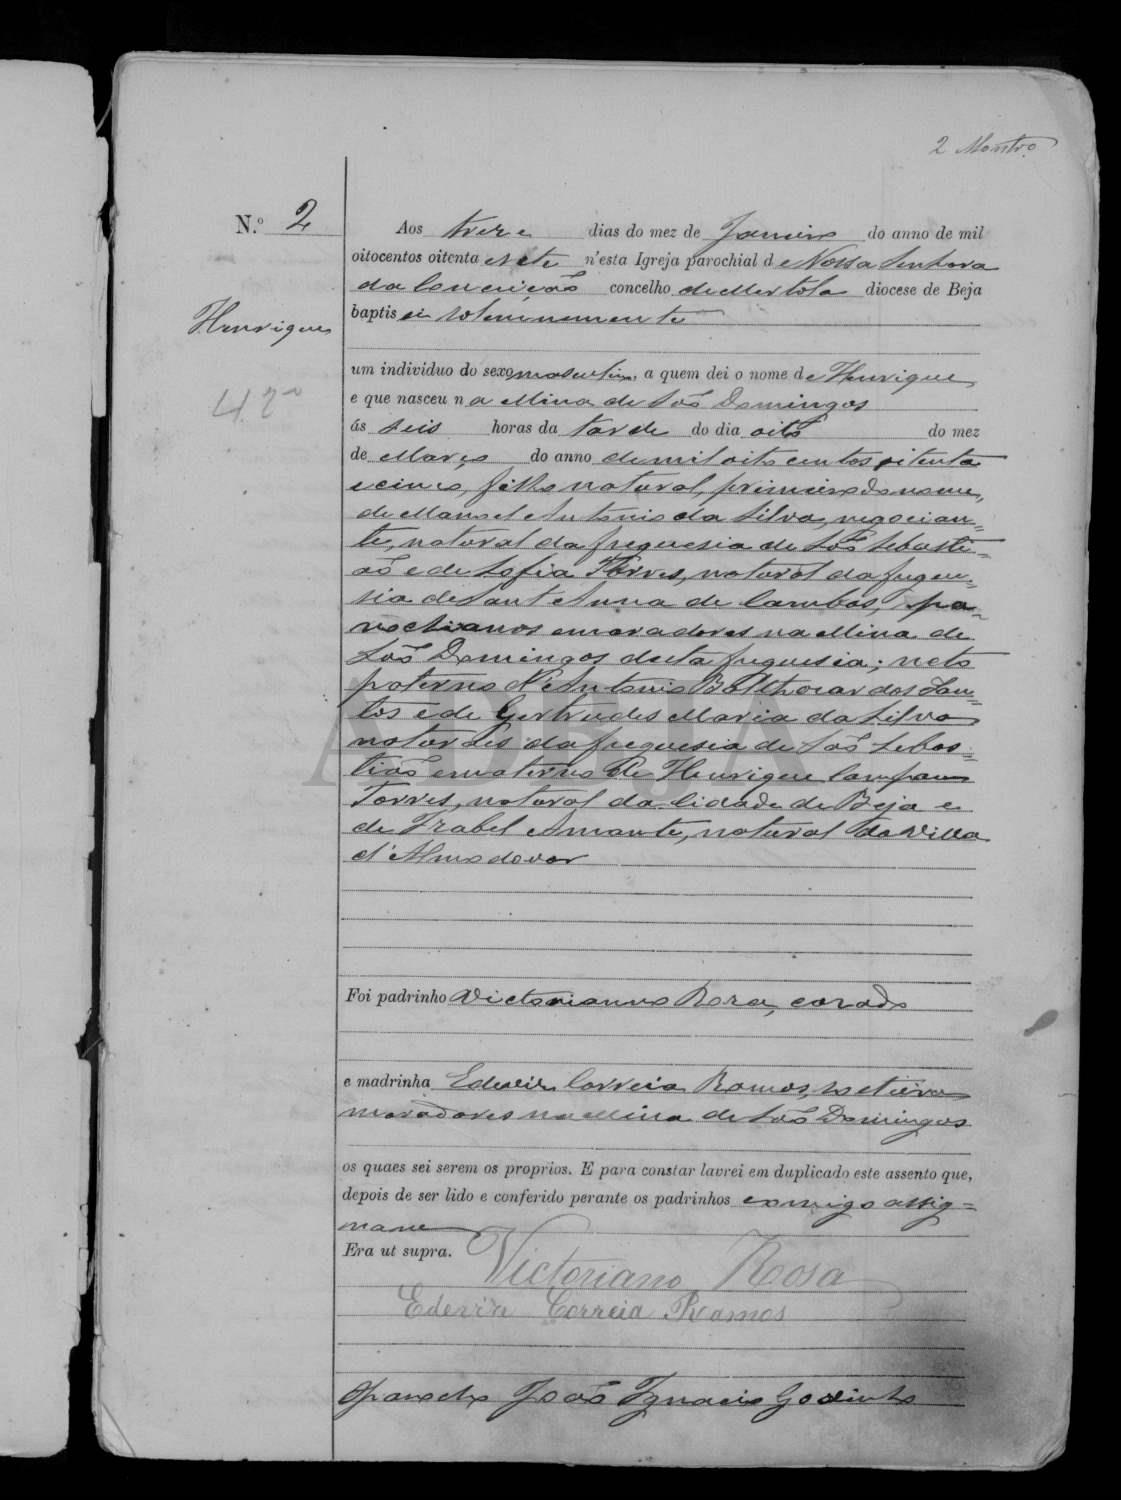 2 Montrº
N.º 2
Henrique
Aos treze dias do mez de Janeiro do anno de mil
oitocentos oitenta e sete n'esta Igreja parochial de Nossa Senhora
da Conceição concelho de Mertola diocese de Beja
baptisei solemnemente
um individuo do sexo masculino, a quem dei o nome de Henrique
e que nasceu na Mina de São Domingos
ás seis horas da tarde do dia oito do mez
de Março do anno de mil oito centos oitenta
e cinco, filho natural, primeiro do nome,
de Manoel Antonio da Silva, negocian=
te, natural da freguesia de São Sebasti=
ão e de Sofia Torres, natural da fregue=
sia de Sant'Anna de Cambas, pa=
rochianos e moradores na Mina de
São Domingos desta freguesia; neto
paterno d'Antonio Balthazar dos San=
tos e de Gertrudes Maria da Silva
naturaes da freguesia de São Sebas=
tião e materno de Henrique Campam
Torres, natural da Cidade de Beja e
de Izabel Amante, natural da Villa
d'Almodovar
ADBJA
Foi padrinho Victorianno Roza, cazado
e madrinha Correia Ramos, solteira
moradores na Mina de São Domingos
os quaes sei serem os proprios. E para constar lavrei em duplicado este assento que,
depois de ser lido e conferido perante os padrinhos comigo assig=
nam
Era ut supra.
Victoriano Rosa
Correia Ramos
O Parocho João Ignacio Godinho